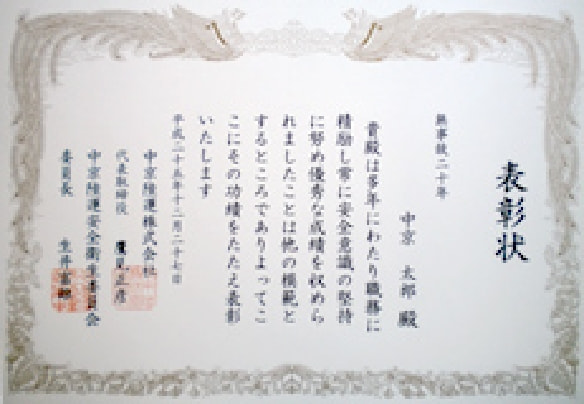 表彰状
無事故二十年
中京 太郎 殿
貴殿は多年にわたり職務に
精励し常に安全意識の堅持
に努め優秀な成績を収めら
れましたことは他の模範と
するところでありよってこ
こにその功績をたたえ表彰
いたします
平成二十五年十二月二十七日
中京陸運株式会社
代表取締役 鷹見正彦
中京陸運安全衛生委員会
委員長 生井